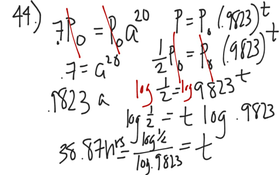 44) .7P₀ = P₀ a²⁰
.7 = a²⁰
.9823 a
P = P₀ (.9823)ᵗ
½P₀ = P₀ (.9823)ᵗ
log ½ = log .9823ᵗ
log ½ = t log .9823
38.87hrs = log ½ / log .9823 = t